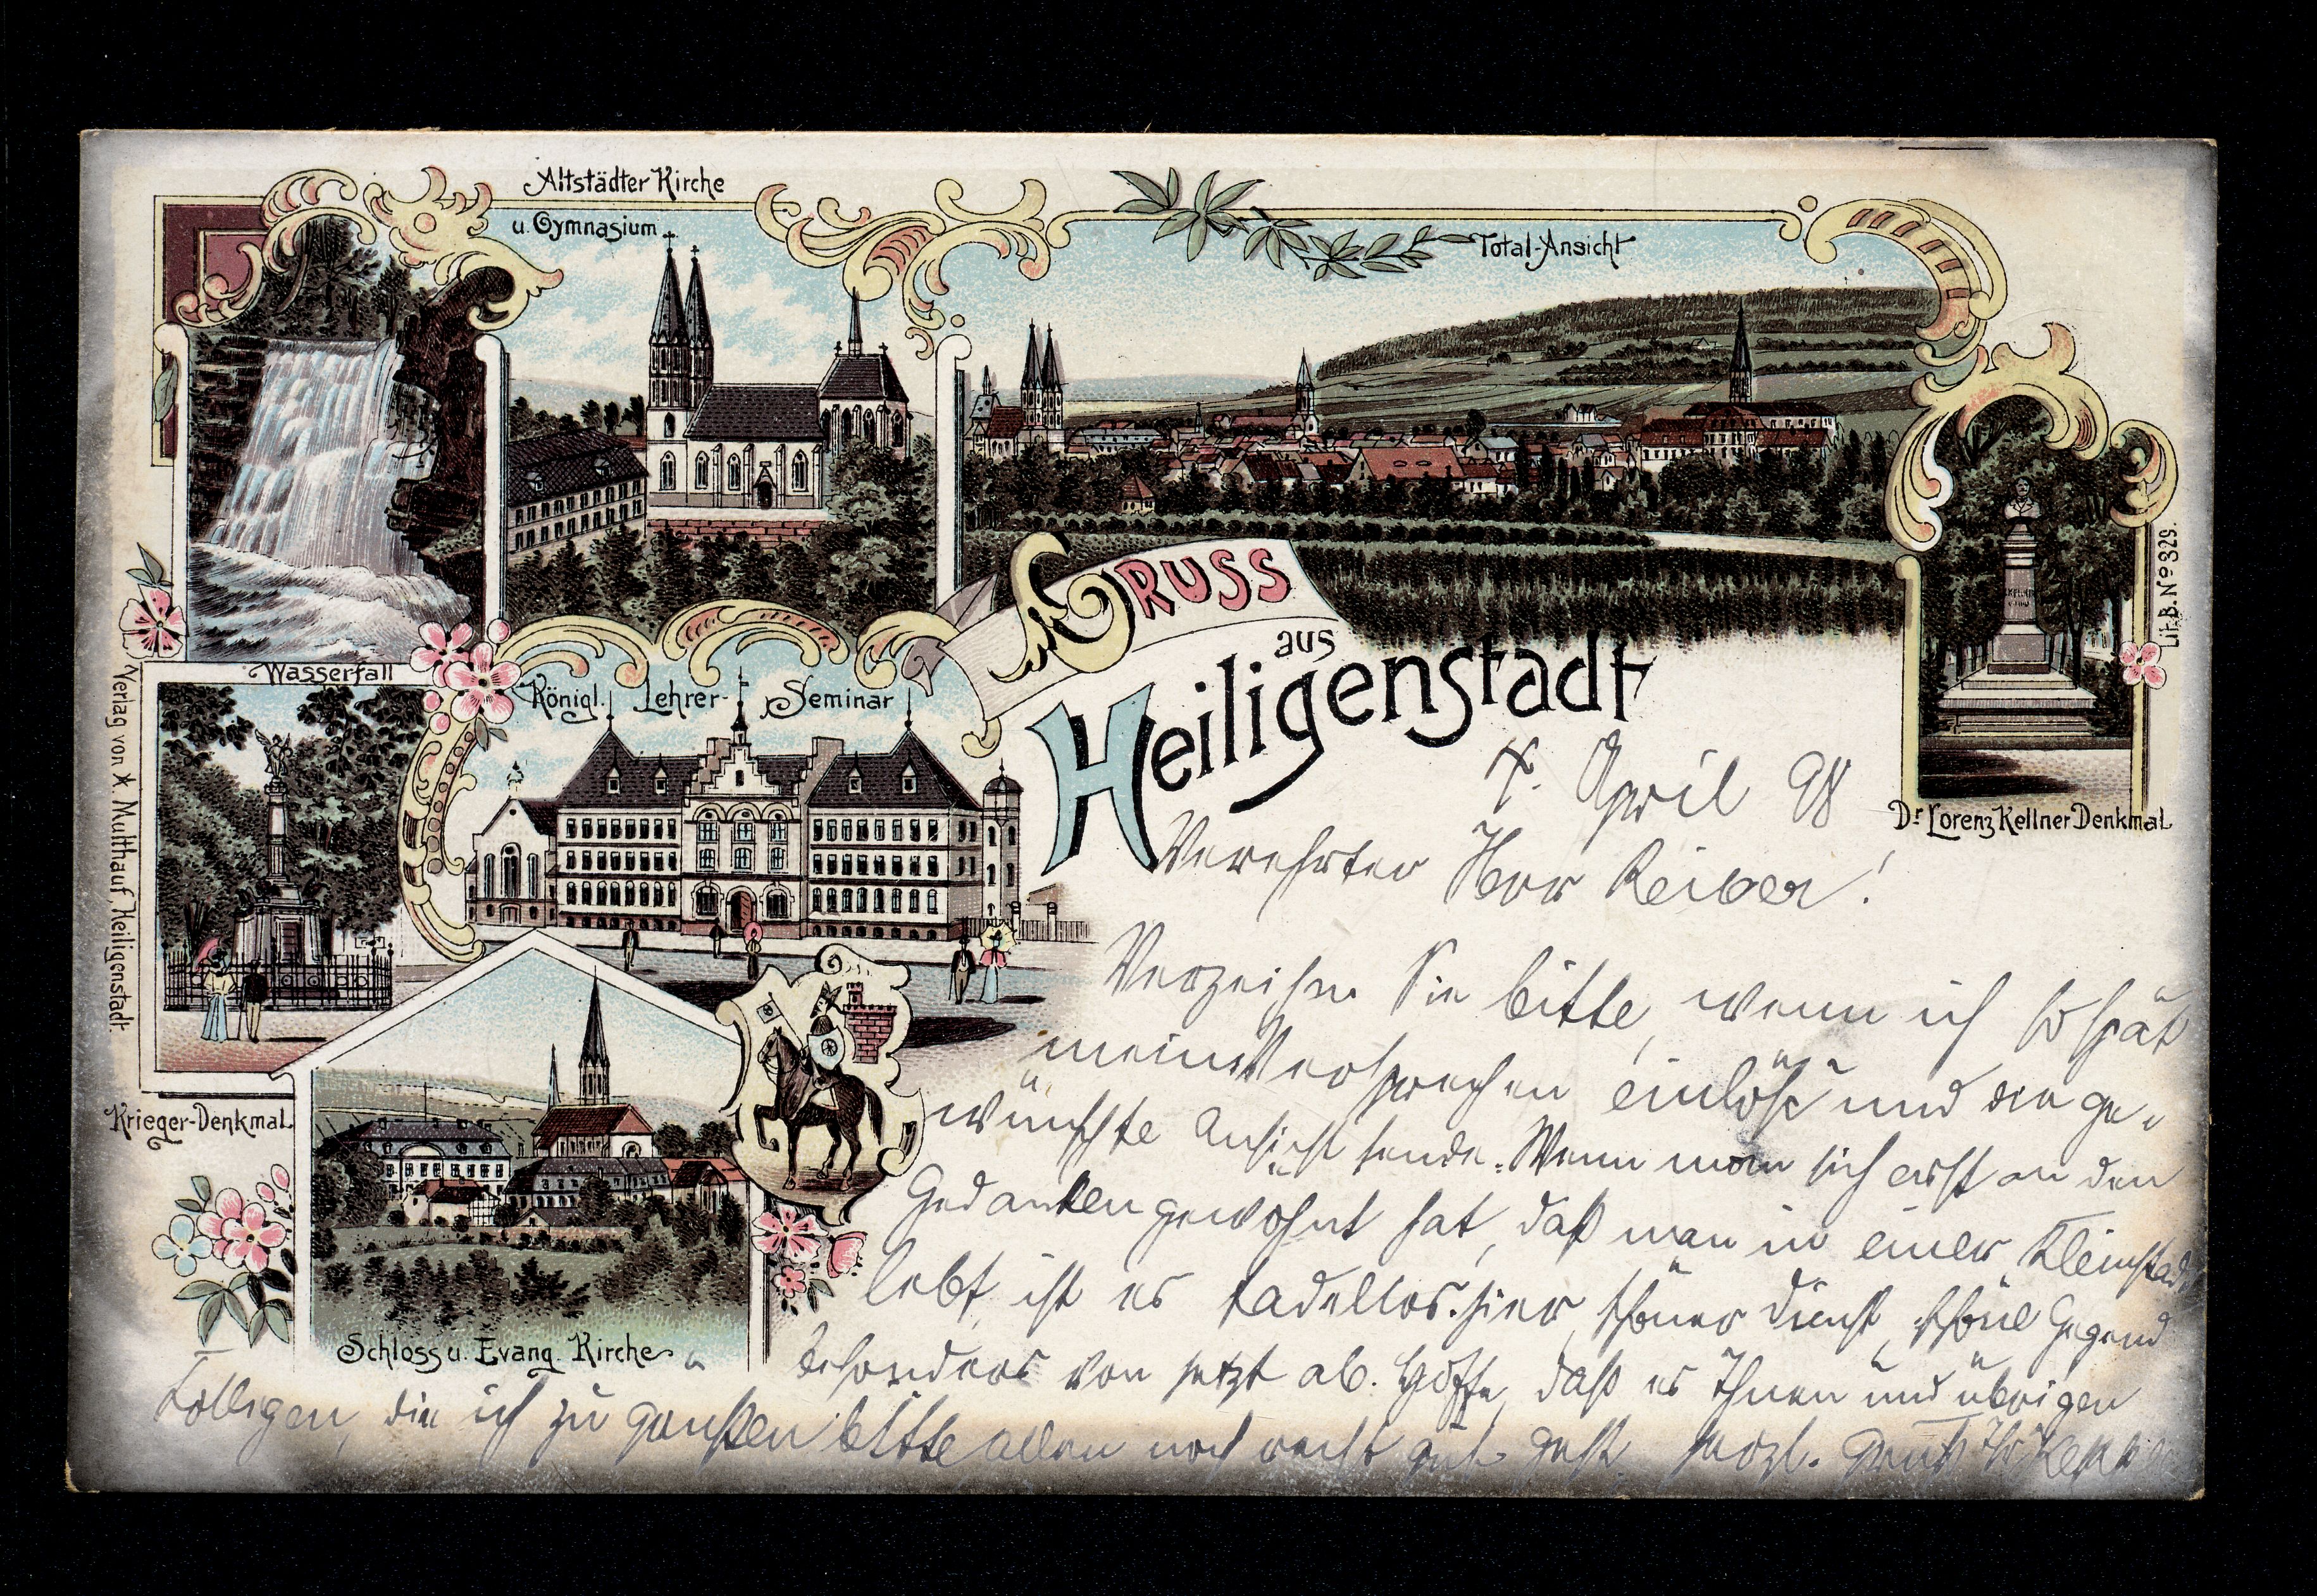 Altstädter Kirche
u. Gymnasium
Total-Ansicht
Wasserfall
Königl. Lehrer-Seminar
Gruss
aus
Heiligenstadt
Dr Lorenz Kellner Denkmal
Lit. B. No 329.
Verlag von K. Multhauf, Heiligenstadt.
Krieger-Denkmal
Schloss u. Evang. Kirche
April 98
Verehrter Herr Reiber!
Verzeihen Sie bitte, wenn ich so spät
mein Versprechen einlöse und die ge-
wünschte Ansicht sende. Wenn man sich erst an den
Gedanken gewöhnt hat, daß man in einer Kleinstadt
lebt, ist es tadellos hier, schöner Dienst, schöne Gegend
besonders von jetzt ab. Hoffe, daß es Ihnen und übrigen
Kollegen, die ich zu grüßen bitte allen noch recht gut geht. Herzl. Gruß Ihr